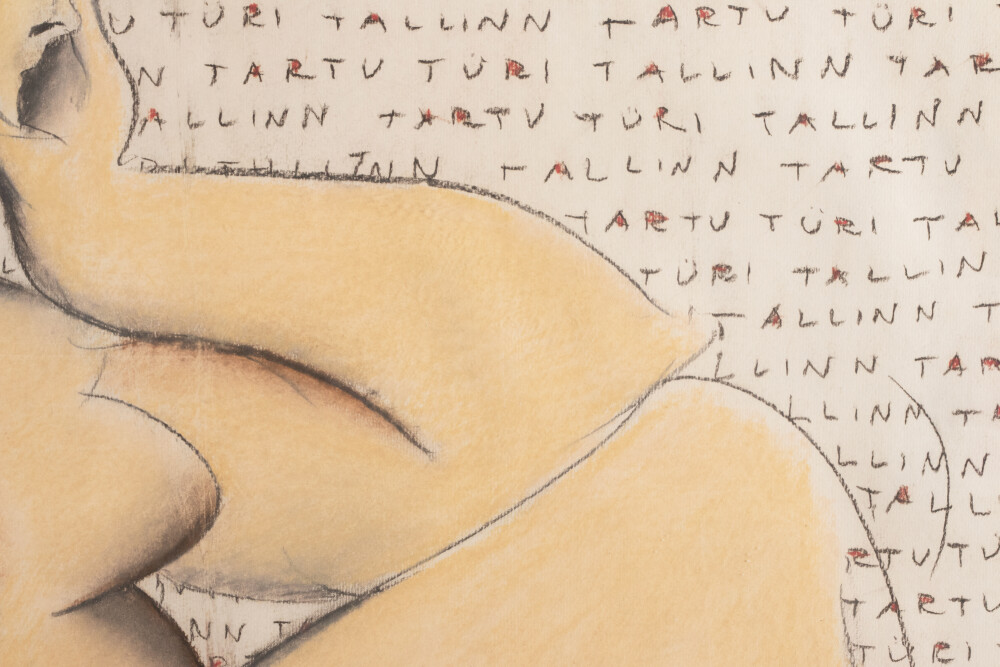 U TÜRI TALLINN TARTU TÜRI
N TARTU TÜRI TALLINN TAR
ALLINN TARTU TÜRI TALLINN
TALLINN TALLINN TARTU
TARTU TÜRI TAL
TÜRI TALLINN
TALLINN T
LLINN TAR
LLINN TA
LLINN
TALL
RTU TÜ
TARTU
NN T TÜRI